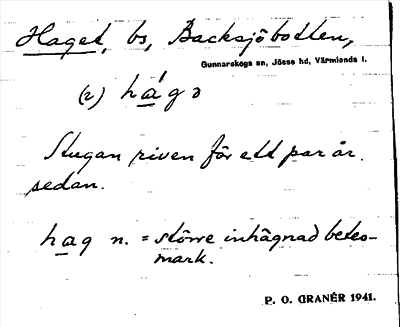 Haget, bs, Backsjöbotten,
Gunnarskogs sn, Jösse hd, Värmlands l.
(2) hágɔ
Stugan riven för ett par år
sedan.
hag n. = större inhägnad betes-
mark.
P. O. GRANÉR 1941.